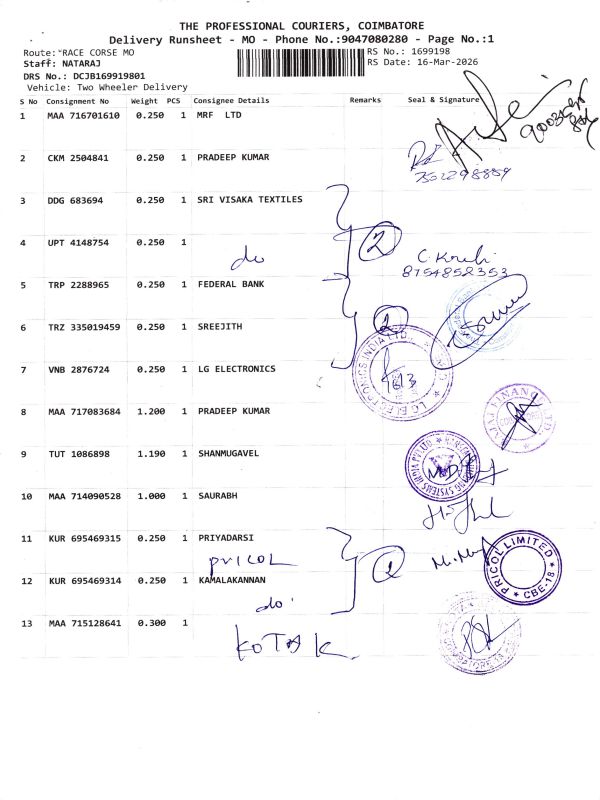 THE PROFESSIONAL COURIERS, COIMBATORE
Delivery Runsheet - MO - Phone No.:9047080280 - Page No.:1
Route: RACE CORSE MO RS No.: 1699198
Staff: NATARAJ RS Date: 16-Mar-2026
DRS No.: DCJB169919801
Vehicle: Two Wheeler Delivery
S No Consignment No Weight PCS Consignee Details Remarks Seal & Signature
1 MAA 716701610 0.250 1 MRF LTD
2 CKM 2504841 0.250 1 PRADEEP KUMAR
3 DDG 683694 0.250 1 SRI VISAKA TEXTILES
2
4 UPT 4148754 0.250 1
do
8754852353
5 TRP 2288965 0.250 1 FEDERAL BANK
6 TRZ 335019459 0.250 1 SREEJITH
2
7 VNB 2876724 0.250 1 LG ELECTRONICS
LG ELECTRONICS INDIA LTD.
8 MAA 717083684 1.200 1 PRADEEP KUMAR
9 TUT 1086898 1.190 1 SHANMUGAVEL
10 MAA 714090528 1.000 1 SAURABH
11 KUR 695469315 0.250 1 PRIYADARSI
PRICOL
PRICOL LIMITED
CBE-18
12 KUR 695469314 0.250 1 KAMALAKANNAN
do
13 MAA 715128641 0.300 1
KOTAK